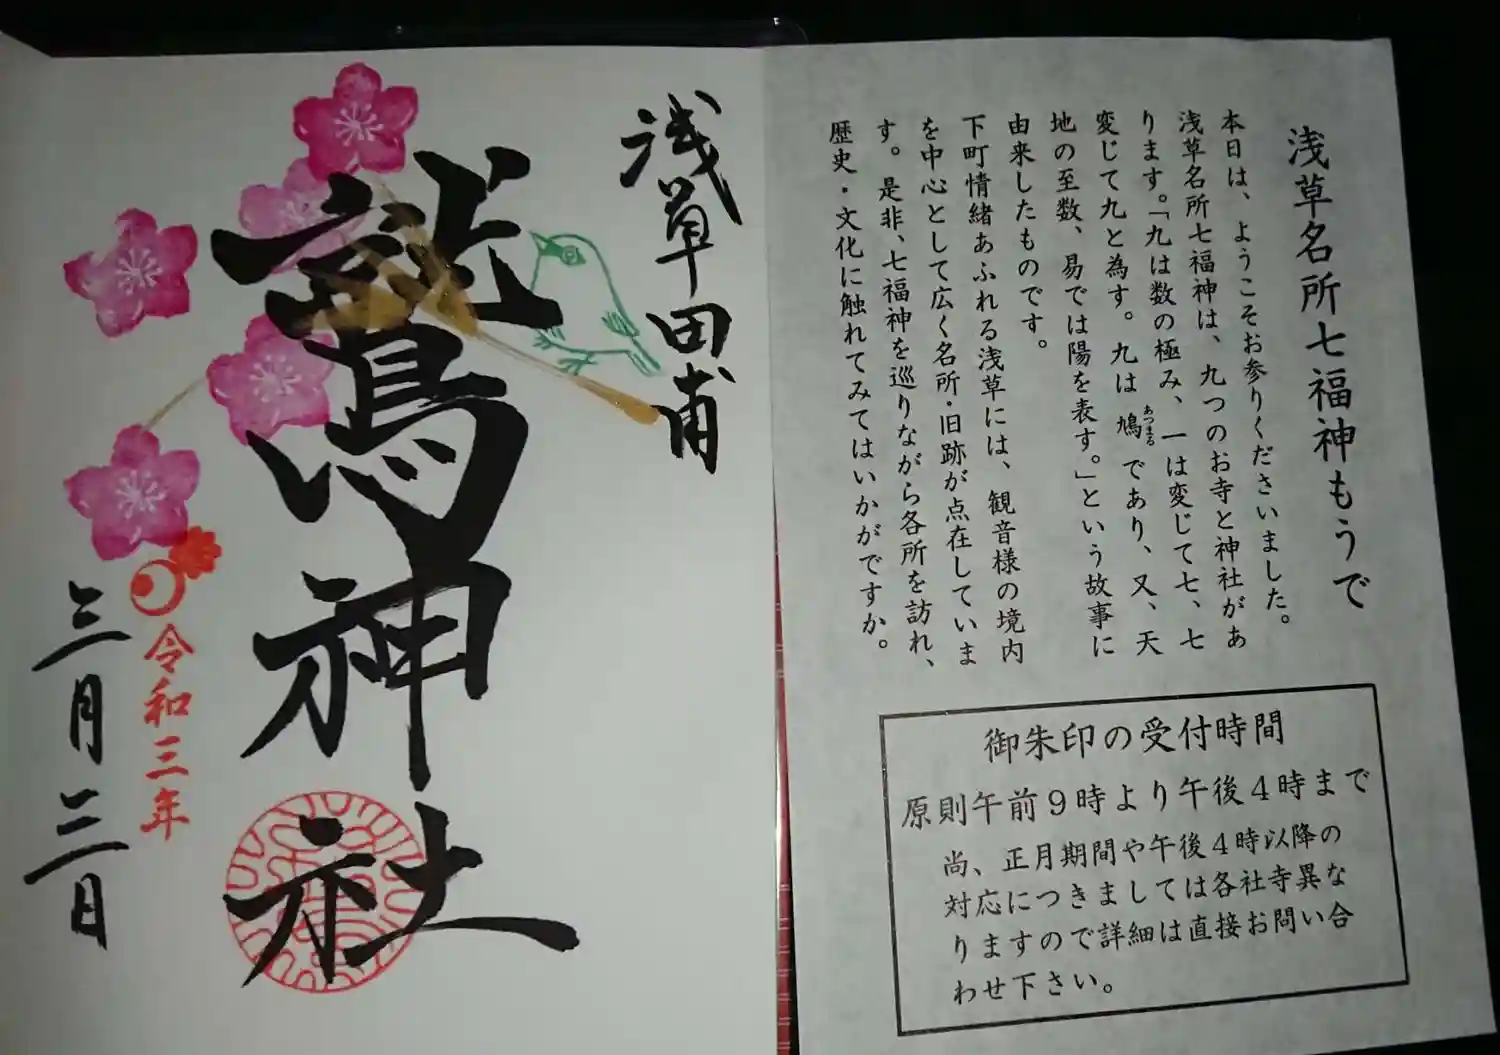 浅草名所七福神もうで
本日は、ようこそお参りくださいました。
浅草名所七福神は、九つのお寺と神社があ
ります。「九は数の極み、一は変じて七、七
変じて九と為す。九は鳩であり、又、天
あつまる
地の至数、易では陽を表す。」という故事に
由来したものです。
下町情緒あふれる浅草には、観音様の境内
を中心として広く名所・旧跡が点在していま
す。是非、七福神を巡りながら各所を訪れ、
歴史・文化に触れてみてはいかがですか。
御朱印の受付時間
原則午前9時より午後4時まで
尚、正月期間や午後4時以降の
対応につきましては各社寺異な
りますので詳細は直接お問い合
わせ下さい。
浅草田甫
鷲神社
令和三年
三月二日